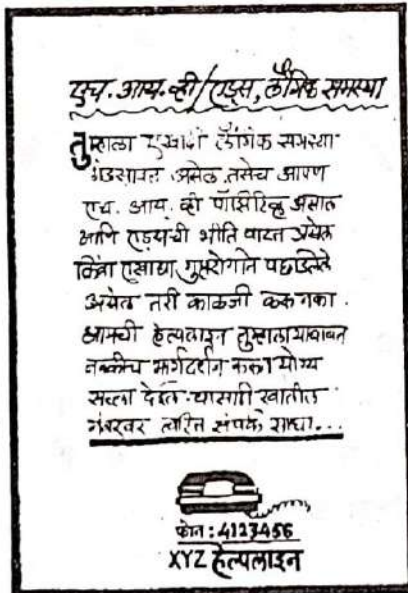 एच. आय. व्ही/एड्स, लैंगिक समस्या
तुम्हाला एखादी लैंगिक समस्या
भेडसावत असेल तसेच आपण
एच. आय. व्ही पॉझिटिव्ह असाल
आणि एड्सची भीति वाटत असेल
किंवा एखाद्या गुप्तरोगाने पछाडलेले
असेल तरी काळजी करू नका.
आमची हेल्पलाइन तुम्हाला याबाबत
नक्कीच मार्गदर्शन करून योग्य
सल्ला देईल. यासाठी खालील
नंबरवर त्वरित संपर्क साधा...
फोन: 4123456
XYZ हेल्पलाइन